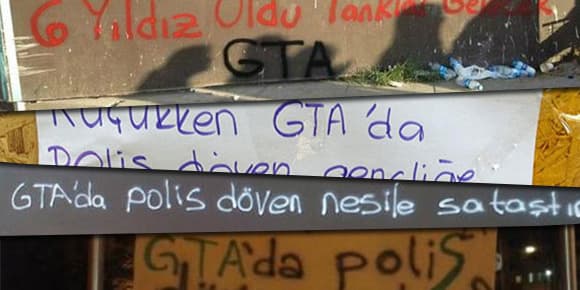 6 Yıldız Oldu Tanklar Gelecek
GTA
Küçükken GTA'da
Polis döven gençliğe
GTA'da polis döven nesile sataştın
GTA'da polis
döven